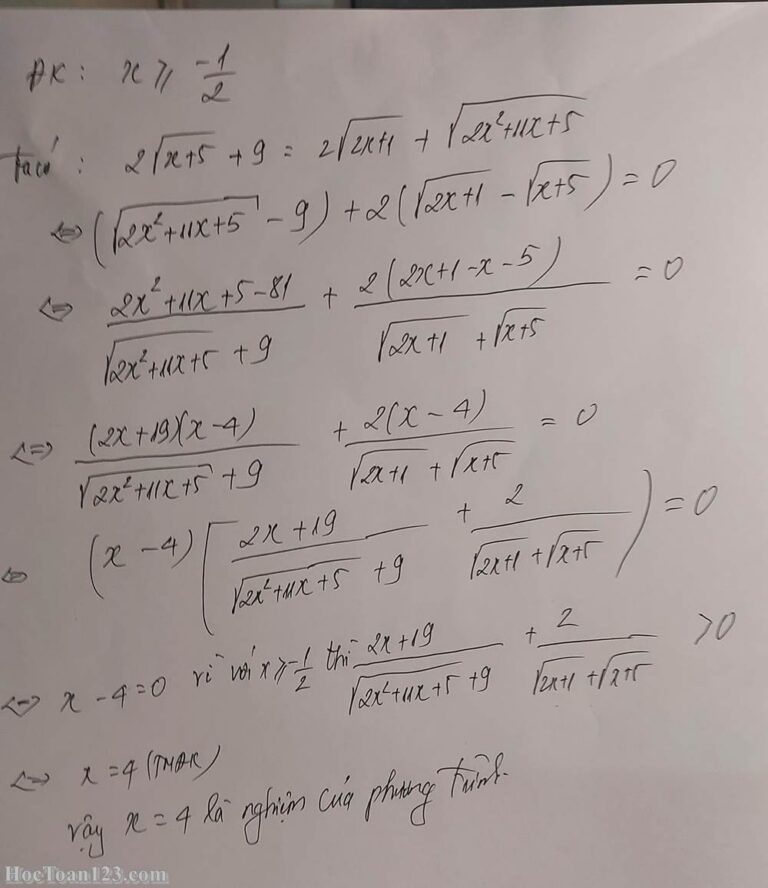 ĐK : x ≥ -1/2
Ta có : 2√(x+5) + 9 = 2√(2x+1) + √(2x²+11x+5)
⇔ (√(2x²+11x+5) - 9) + 2(√(2x+1) - √(x+5)) = 0
⇔ (2x²+11x+5-81)/(√(2x²+11x+5) + 9) + 2(2x+1-x-5)/(√(2x+1) + √(x+5)) = 0
⇔ (2x+19)(x-4)/(√(2x²+11x+5) + 9) + 2(x-4)/(√(2x+1) + √(x+5)) = 0
⇔ (x-4)[(2x+19)/(√(2x²+11x+5) + 9) + 2/(√(2x+1) + √(x+5))) = 0
⇔ x-4=0 vì với x ≥ -1/2 thì (2x+19)/(√(2x²+11x+5) + 9) + 2/(√(2x+1) + √(x+5)) > 0
⇔ x = 4 (TMĐK)
vậy x = 4 là nghiệm của phương trình.
HocToan123.com